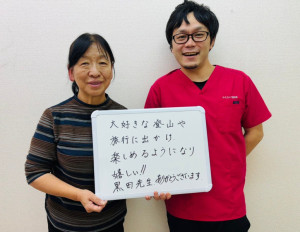 大好きな登山や
旅行に出かけ
楽しめるようになり
嬉しい!!
黒田先生ありがとうございます